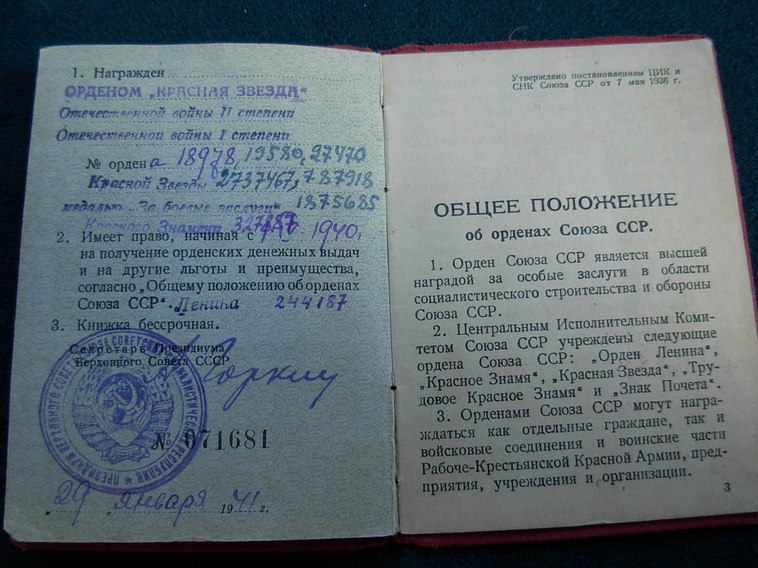 1. Награжден
ОРДЕНОМ „КРАСНАЯ ЗВЕЗДА"
Отечественной войны II степени
Отечественной войны I степени
№ ордена 18978, 19580, 27470
Красной Звезды 2737467, 787918
медалью „За боевые заслуги" 1875685
Красного Знамени 327887
2. Имеет право, начиная с 1940г.
на получение орденских денежных выдач
и на другие льготы и преимущества,
согласно „Общему положению об орденах
Союза ССР". Ленина 244187
3. Книжка бессрочная.
Секретарь Президиума
Верховного Совета СССР
Горкин
№ 071681
„29" января 1941 г.
Утверждено постановлением ЦИК и
СНК Союза ССР от 7 мая 1936 г.
ОБЩЕЕ ПОЛОЖЕНИЕ
об орденах Союза ССР.
1. Орден Союза ССР является высшей
наградой за особые заслуги в области
социалистического строительства и обороны
Союза ССР.
2. Центральным Исполнительным Коми-
тетом Союза ССР учреждены следующие
ордена Союза ССР: „Орден Ленина",
„Красное Знамя", „Красная Звезда", „Тру-
довое Красное Знамя" и „Знак Почета".
3. Орденами Союза ССР могут награ-
ждаться как отдельные граждане, так и
войсковые соединения и воинские части
Рабоче-Крестьянской Красной Армии, пред-
приятия, учреждения и организации.
3